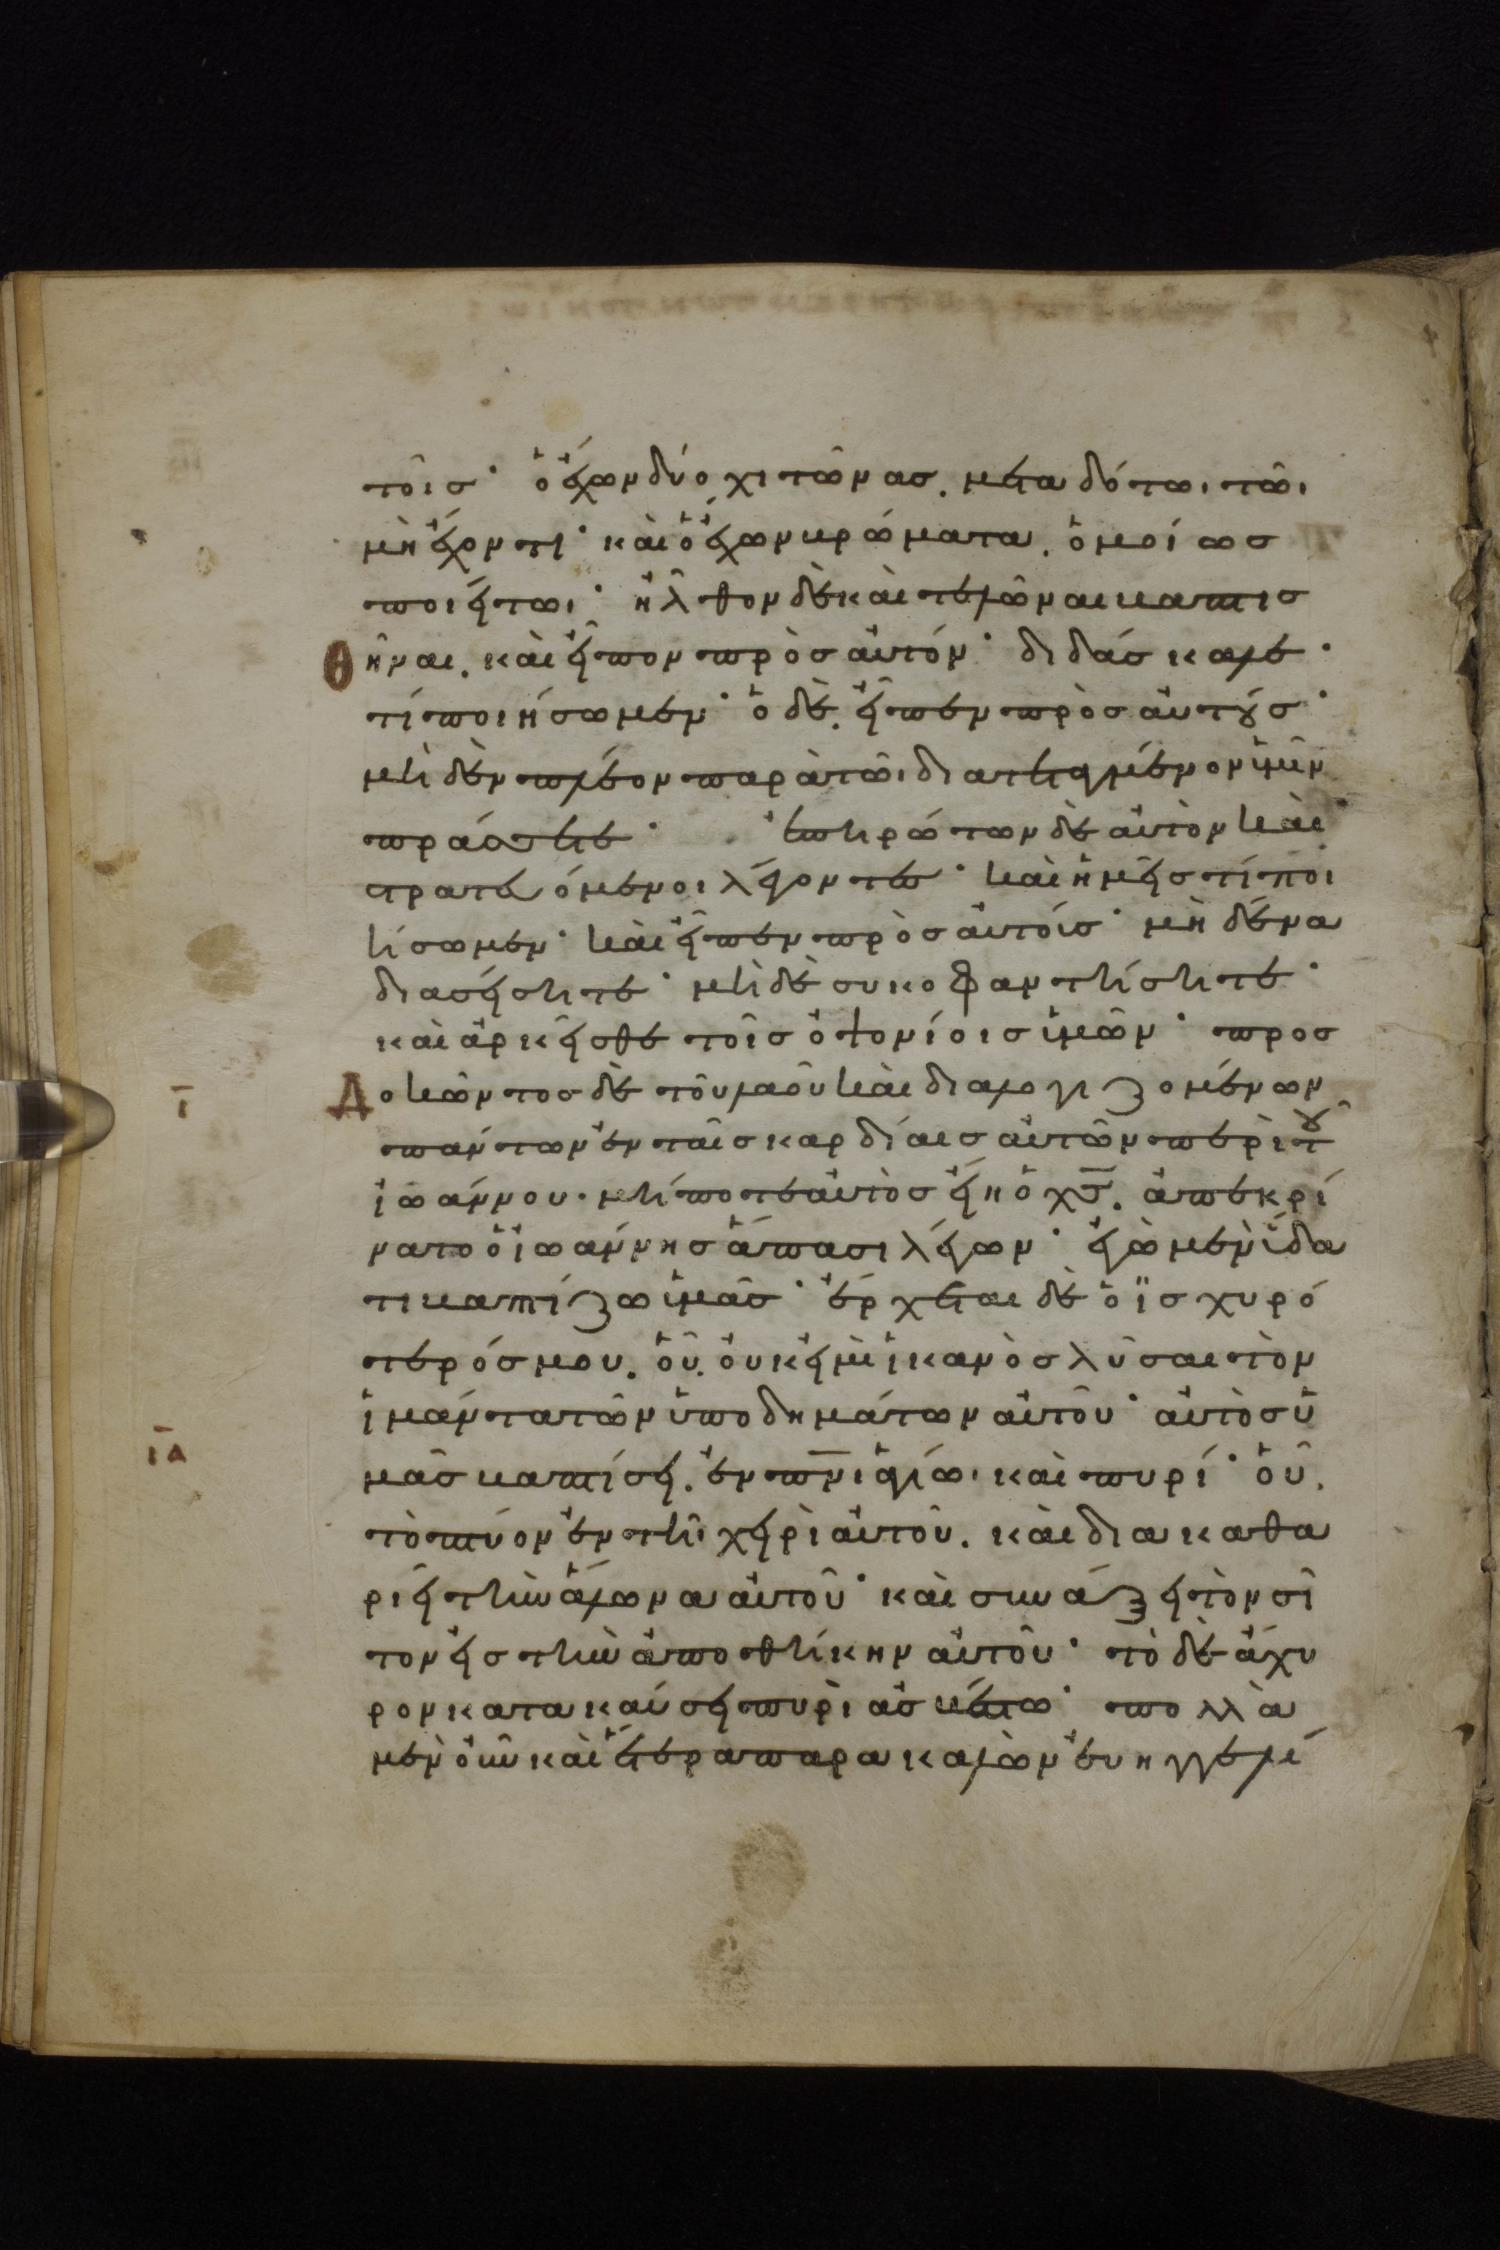 τοῖς· ὁ ἔχων δύο χιτῶνας. μεταδότωι τῶι
μὴ ἔχοντι· καὶ ὁ ἔχων βρώματα. ὁμοίως
ποιείτωι· ἦλθον δὲ καὶ τελῶναι βαπτισ
θῆναι. καὶ εἶπον πρὸς αὐτόν· διδάσκαλε·
τί ποιήσωμεν· ὁ δὲ. εἶπεν πρὸς αὐτούς·
μηδὲν πλέον παρὰ τῶι διατεταγμένον ὑμῖν
πράσσετε· ἐπηρώτων δὲ αὐτὸν καὶ
στρατευόμενοι λέγοντες· καὶ ἡμεῖς τί ποι
ήσωμεν· καὶ εἶπεν πρὸς αὐτοίς· μὴδένα
διασείσητε· μὴδὲ συκοφαντήσητε·
καὶ ἀρκεῖσθε τοῖς ὀψονίοις ὑμῶν· προσ
Δοκῶντος δὲ τοῦ λαοῦ καὶ διαλογιζομένων
πάντων ἐν ταῖς καρδίαις αὐτῶν περὶ τοῦ
ἰωάννου. μήποτε αὐτὸς εἴη ὁ χς̅. ἀπεκρί
νατο ὁ ἰωάννης ἅπασι λέγων· ἐγὼ μὲν ὕδα
τι βαπτίζω ὑμᾶς· ἔρχεται δὲ ὁ ἰσχυρό
τερός μου. οὗ. οὐκ εἰμὶ ἱκανὸς λῦσαι τὸν
ἱμάντα τῶν ὑποδημάτων αὐτοῦ· αὐτὸς ὑ
μᾶς βαπτίσει. ἐν πν̅ι ἁγίω. καὶ πυρί· οὗ.
τὸ πτύον ἐν τῆι χειρὶ αὐτοῦ. καὶ διακαθα
ριεῖ τὴν ἅλωνα αὐτοῦ· καὶ συνάξει τὸν σῖ
τον εἰς τὴν ἀποθήκην αὐτοῦ· τὸ δὲ ἄχυ
ρον κατακαύσει πυρὶ ἀσβέστω· πολλὰ
μὲν οὖν καὶ ἕτερα παρακαλῶν εὐηγγελί
ι̅
ι̅α